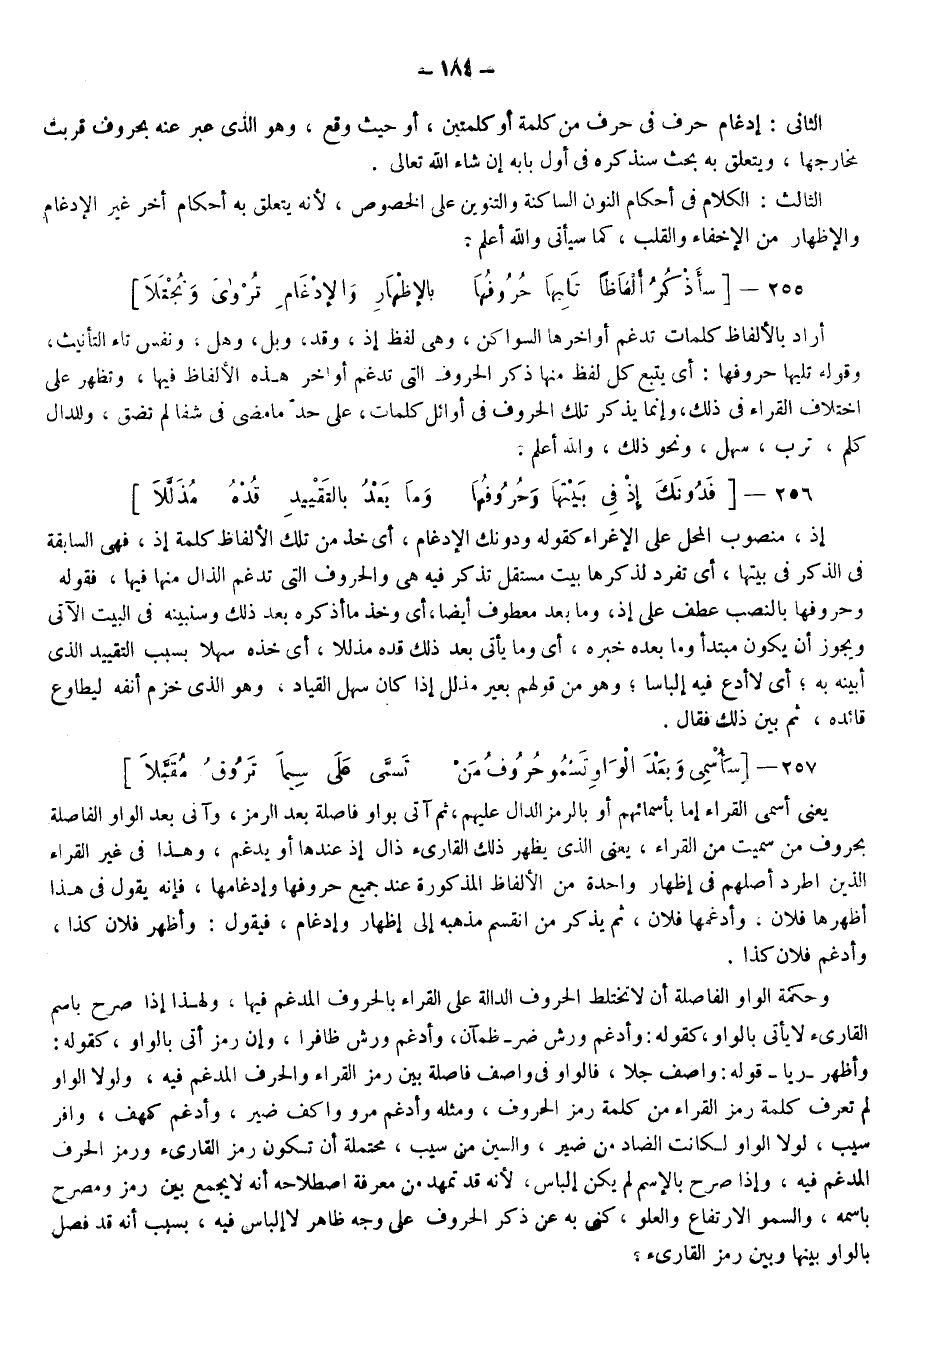 – ١٨٤ –
الثانى : إدغام حرف فى حرف من كلمة أو كلمتين ، أو حيث وقع ، وهو الذى عبر عنه بحروف قربت
مخارجها ، ويتعلق به بحث سنذكره فى أول بابه إن شاء الله تعالى .
الثالث : الكلام فى أحكام النون الساكنة والتنوين على الخصوص ، لأنه يتعلق به أحكام أخر غير الإدغام
والإظهار من الإخفاء والقلب ، كما سيأتى والله أعلم :
٢٥٥ – [ سَأَذْكُرُ أَلْفَاظًا تَلِيهَا حُرُوفُهَا بالإظْهَارِ وَالإدْغَامِ تُرْوَى وَتُجْتَلَا ]
أراد بالألفاظ كلمات تدغم أواخرها السواكن ، وهى لفظ إذ ، وقد، وبل، وهل ، ونفس تاء التأنيث،
وقوله تليها حروفها : أى يتبع كل لفظ منها ذكر الحروف التى تدغم أواخر هذه الألفاظ فيها ، وتظهر على
اختلاف القراء فى ذلك، وإنما يذكر تلك الحروف فى أوائل كلمات، على حد مامضى فى شفا لم تضق ، وللدال
كلم ، ترب ، سهل ، ونحو ذلك ، والله أعلم :
٢٥٦ – [ فَدُونَكَ إِذْ فِى بَيْتِهَا وَحُرُوفُهَا وَمَا بَعْدُ بالتَّقْيِيدِ قُدْهُ مُذَلَّلَا ]
إذ ، منصوب المحل على الإغراء كقوله ودونك الإدغام ، أى خذ من تلك الألفاظ كلمة إذ ، فهى السابقة
فى الذكر فى بيتها ، أى تفرد لذكرها بيت مستقل تذكر فيه هى والحروف التى تدغم الذال منها فيها ، فقوله
وحروفها بالنصب عطف على إذ، وما بعد معطوف أيضا، أى وخذ ماأذكره بعد ذلك وسنبينه فى البيت الآتى
ويجوز أن يكون مبتدأ وما بعده خبره ، أى وما يأتى بعد ذلك قده مذللا ، أى خذه سهلا بسبب التقييد الذى
أبينه به ؛ أى لاأدع فيه إلباسا ؛ وهو من قولهم بعير مذلل إذا كان سهل القياد ، وهو الذى خزم أنفه ليطاوع
قائده ، ثم بين ذلك فقال .
٢٥٧ – [سَأُسْمِى وَبَعْدَ الْوَاوِ تَسْمُو حُرُوفُ مَنْ تَسَمَّى عَلَى سِيمَا تَرُوقُ مُقَبَّلَا ]
يعنى أسمى القراء إما بأسمائهم أو بالرمز الدال عليهم، ثم آتى بواو فاصلة بعد الرمز ، وآتى بعد الواو الفاصلة
بحروف من سميت من القراء ، يعنى الذى يظهر ذلك القارىء ذال إذ عندها أو يدغم ، وهذا فى غير القراء
الذين اطرد أصلهم فى إظهار واحدة من الألفاظ المذكورة عند جميع حروفها وإدغامها ، فإنه يقول فى هذا
أظهرها فلان ، وأدغمها فلان ، ثم يذكر من انقسم مذهبه إلى إظهار وإدغام ، فيقول : وأظهر فلان كذا ،
وأدغم فلان كذا .
وحكمة الواو الفاصلة أن لاتختلط الحروف الدالة على القراء بالحروف المدغم فيها ، ولهذا إذا صرح باسم
القارىء لايأتى بالواو، كقوله: وأدغم ورش ضر ـ ظمآن، وأدغم ورش ظافرا ، وإن رمز أتى بالواو ، كقوله:
وأظهر ـ ريا ـ قوله: واصف جلا ، فالواو فى واصف فاصلة بين رمز القراء والحرف المدغم فيه ، ولولا الواو
لم تعرف كلمة رمز القراء من كلمة رمز الحروف ، ومثله وأدغم مرو واكف ضير ، وأدغم كهف ، وافر
سيب ، لولا الواو لكانت الضاد من ضير ، والسين من سيب ، محتملة أن تكون رمز القارىء ورمز الحرف
المدغم فيه ، وإذا صرح بالإسم لم يكن إلباس، لأنه قد تمهد من معرفة اصطلاحه أنه لايجمع بين رمز ومصرح
باسمه ، والسمو الارتفاع والعلو ، كنى به عن ذكر الحروف على وجه ظاهر لاإلباس فيه ، بسبب أنه قد فصل
بالواو بينها وبين رمز القارىء ؟